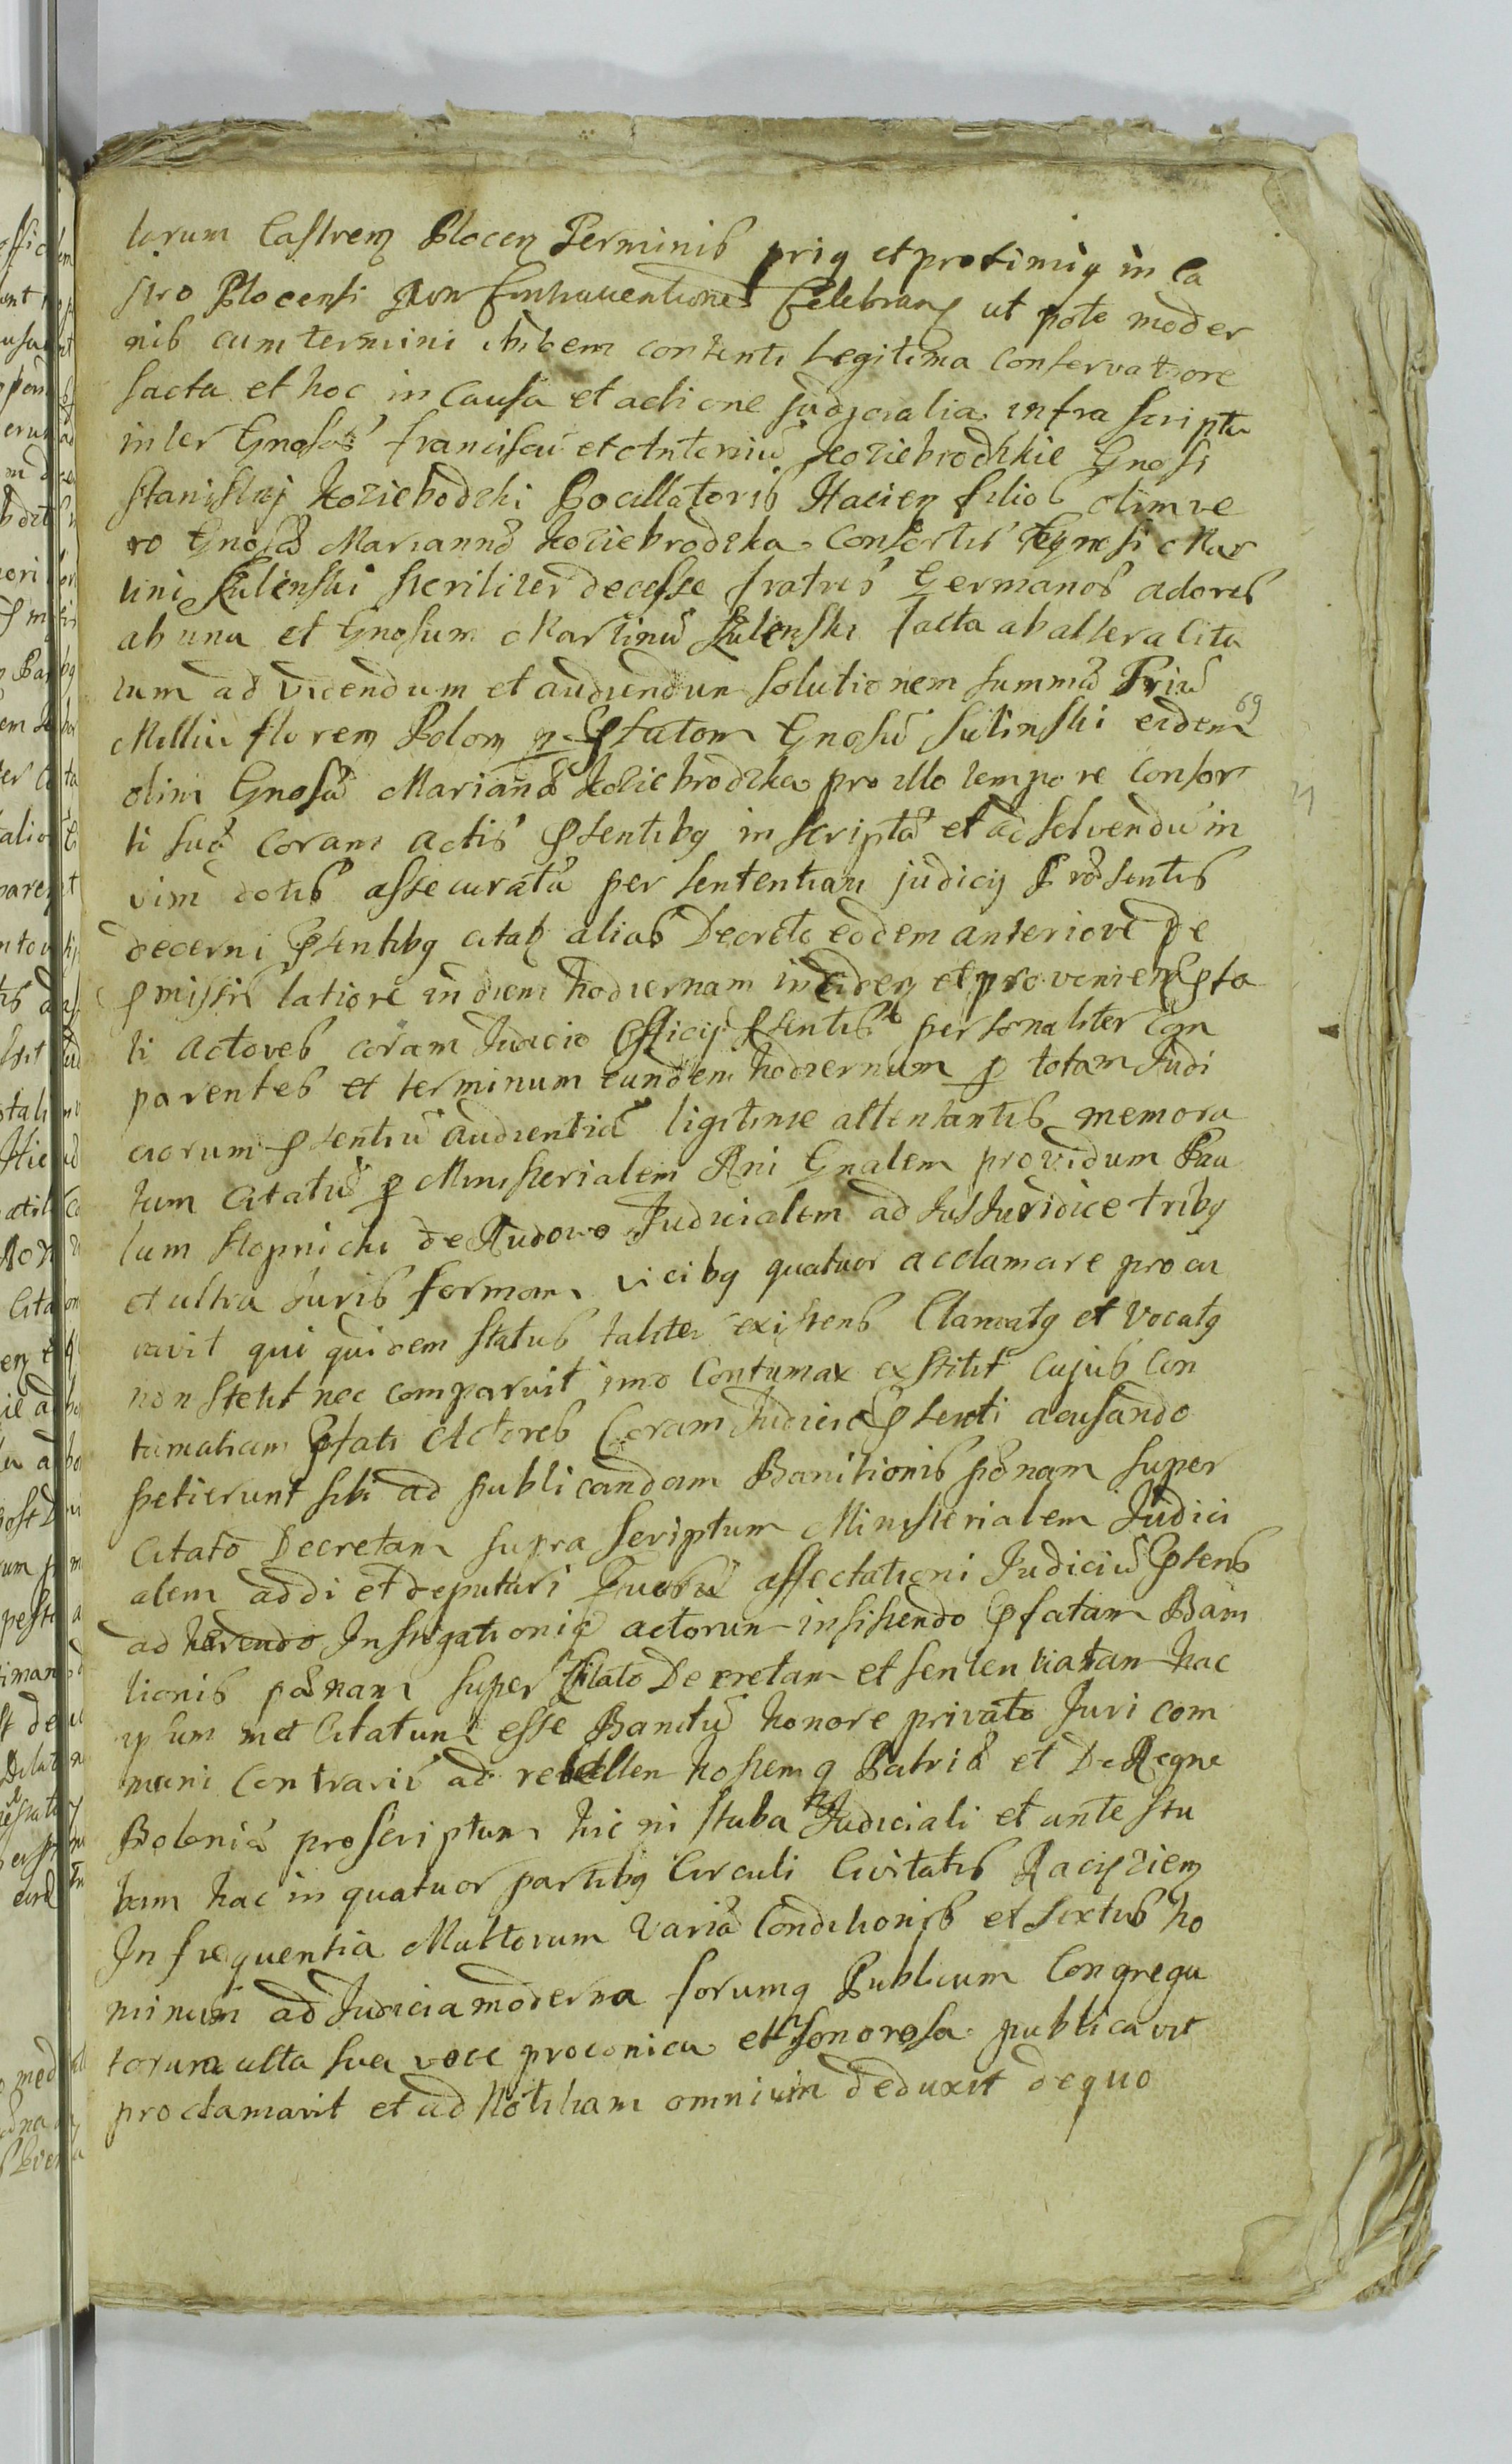 torum Castren Plocen Terminis prig et proximig in Ca
stro Plocensi Celebran ut pote moder
nis cum termini ibidem contenti Legitima conservatiore
facta et hoc in Causa et actione judycialia infra scripta
inter Gnosos Franciscu et Antoniu Koziebrodzkie Gnosi
Stanislaj Koziebodzki Pocillatoris Racien filios olim ve
ro Gnosæ Mariannæ Koziebrodzka Consortis Gnosi Mar
tini Sulenski steriliter decesse fratres Germanos actores
ab una et Gnosum Martinu Sulenski facta ab altera Cita
tum ad videndum et audiendum solutionem summæ Triu
69
Milliu floren Polon p Pfatom Gnosu Sulinski eidem
olim Gnosæ Marianæ Koziebrodzka pro illo tempore Consor
ti suæ coram actis Psentibg inscriptæ et ad solvendu in
vim dotis assecuratæ per sententiam judicij Præsentis
decerni Psentibg citat alias Decreto eodem anteriore de
Pmissis latiore in diem hodiernam inciden et provenien Pfa
ti actores coram Judicio Officij Psentis personaliter Com
parentes et terminum eundem hodiernum p totam Judi
ciorum Psentiu audientiã ligitime attentantes memora
tum Citatu p Ministerialem Rni Gnalem providum Pau
lum Slopnicki de Rudowo Judicialem ad Jus Juridice tribg
et ultra Juris formam vicibg quatuor acclamare procu
ravit qui quidem status taliter existens Clamatg et Vocatg
non stetit nec comparuit imo Contumax exstitit cujus Con
tumatiam Pfati Actores Coram Judicio Psenti acusando
petierunt sibi ad publicandam Banitionis pænam super
Citato Decretam supra scriptum Ministerialem Judici
alem addi et deputari Quoru affectationi Judiciu Psens
ad herendo Instigationiq actorum insistendo Pfatam Bani
tionis pænam super Citato Decretam et sententiatam hac
ipsum met Citatum esse Banitu honore privato Juri com
muni Contrariu ad rebellem hostemq Patriæ et De Regne
Poloniæ proscriptum hic in stuba Judiciali et ante stu
bam hac in quatuor partibg Circuli Civitatis Raciąziem
In frequentia Multorum Variæ Conditionis et sextus ho
minum ad Judicia moderna forumq Publicum Congrega
torum alta sua voce proconica et sonorosa publicavit
proclamavit et ad Notitiam omnium deduxit de quo